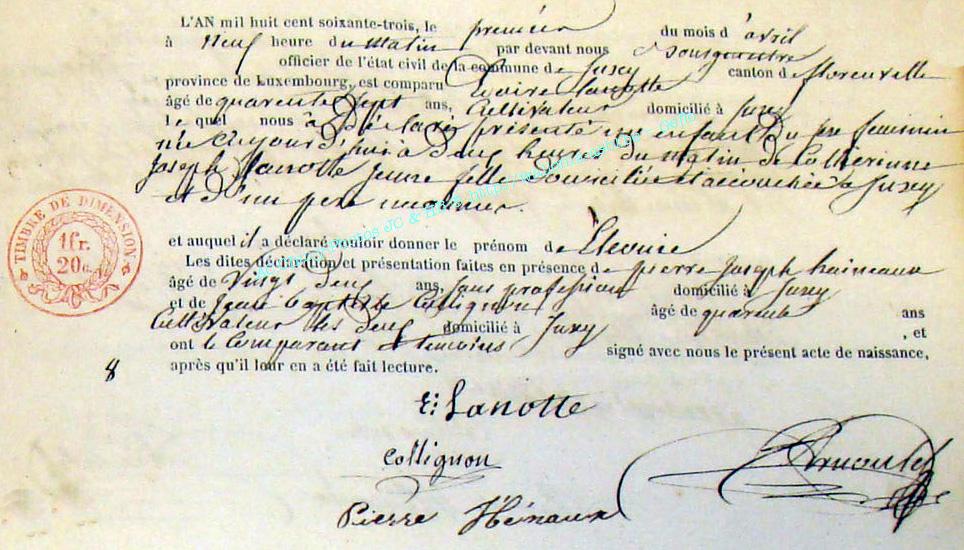 L'AN mil huit cent soixante-trois, le premier du mois d'avril
à neuf heure du matin par devant nous
officier de l'état civil de la commune de Juxey canton de florenville
province de Luxembourg, est comparu Lanotte
âgé de quarente sept ans, Cultivateur domicilié à Juxey
lequel nous à Déclaré présenté un enfant du feminin
née ce jourd'hui à deux heures du matin de Catherinne
Joseph Lanotte jeune fille domiciliée et accouchée à Juxey
et d'un père inconnu.
et auquel il a déclaré vouloir donner le prénom de
Les dites déclaration et présentation faites en présence de pierre Joseph haineaux
âgé de vingt deux ans, sans profession domicilié à Juxey
et de Jean baptiste Collignon âgé de quarente ans
Cultivateur les deux domicilié à Juxey , et
ont le Comparant et temoins signé avec nous le présent acte de naissance,
après qu'il leur en a été fait lecture.
8
TIMBRE DE DIMENSION
1fr.
20c.
E: Lanotte
Collignon
Pierre Hénaux